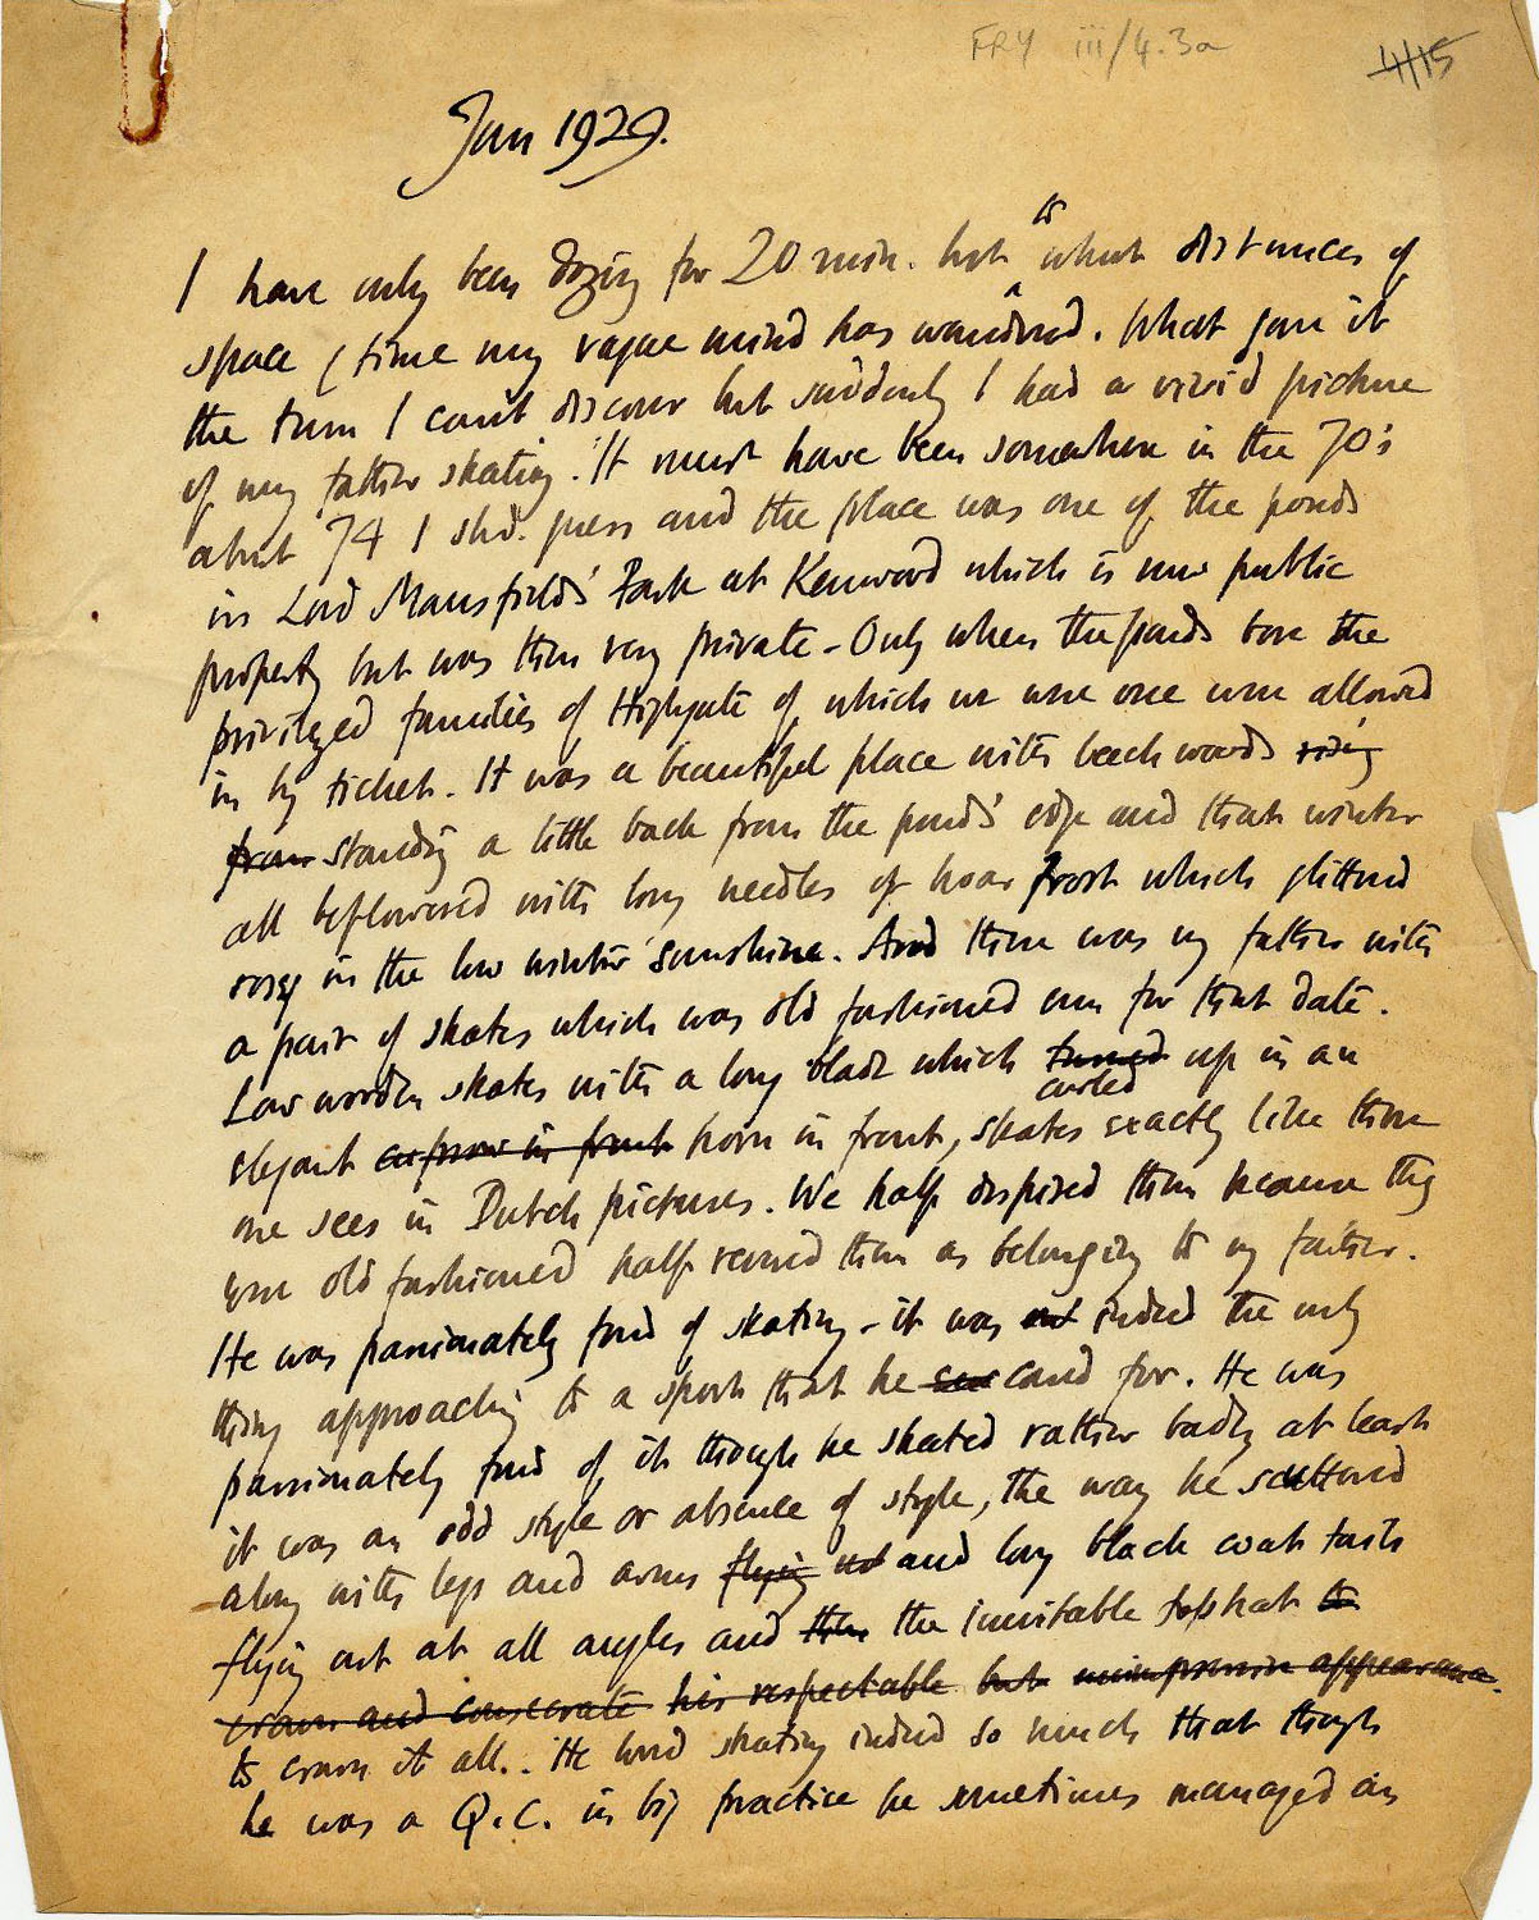 FRY iii/4.3a
4/15
Jan 1929.
to
I have only been dozing for 20 min. but ^ what distances of
space & time my vague mind has wandered. What gave it
the turn I can't discover but suddenly I had a vivid picture
of my father skating. It must have been somewhere in the 70's
about '74 I shd. guess and the place was one of the ponds
in Lord Mansfield's Park at Kenwood which is now public
property but was then very private - Only when the ponds bore the
privileged families of Highgate of which we were one were allowed
in by ticket. It was a beautiful place with beech woods rising
from standing a little back from the pond's edge and that winter
all beflowered with long needles of hoar frost which glittered
rosy in the low winter sunshine. And there was my father with
a pair of skates which was old fashioned even for that date.
Low wooden skates with a long blade which turned up in an
curled
elegant in front horn in front, skates exactly like those
one sees in Dutch pictures. We half despised them because they
were old fashioned half revered them as belonging to my father.
He was passionately fond of skating - it was indeed the only
thing approaching to a sport that he cared for. He was
passionately fond of it though he skated rather badly at least
it was an odd style or absence of style, the way he scuttered
along with legs and arms flying out and long black coat tails
flying out at all angles and then the inevitable tophat to
crown and consecrate his respectable but unimpressive appearance.
to crown it all.. He loved skating indeed so much that though
he was a Q.C. in big practice he sometimes managed an